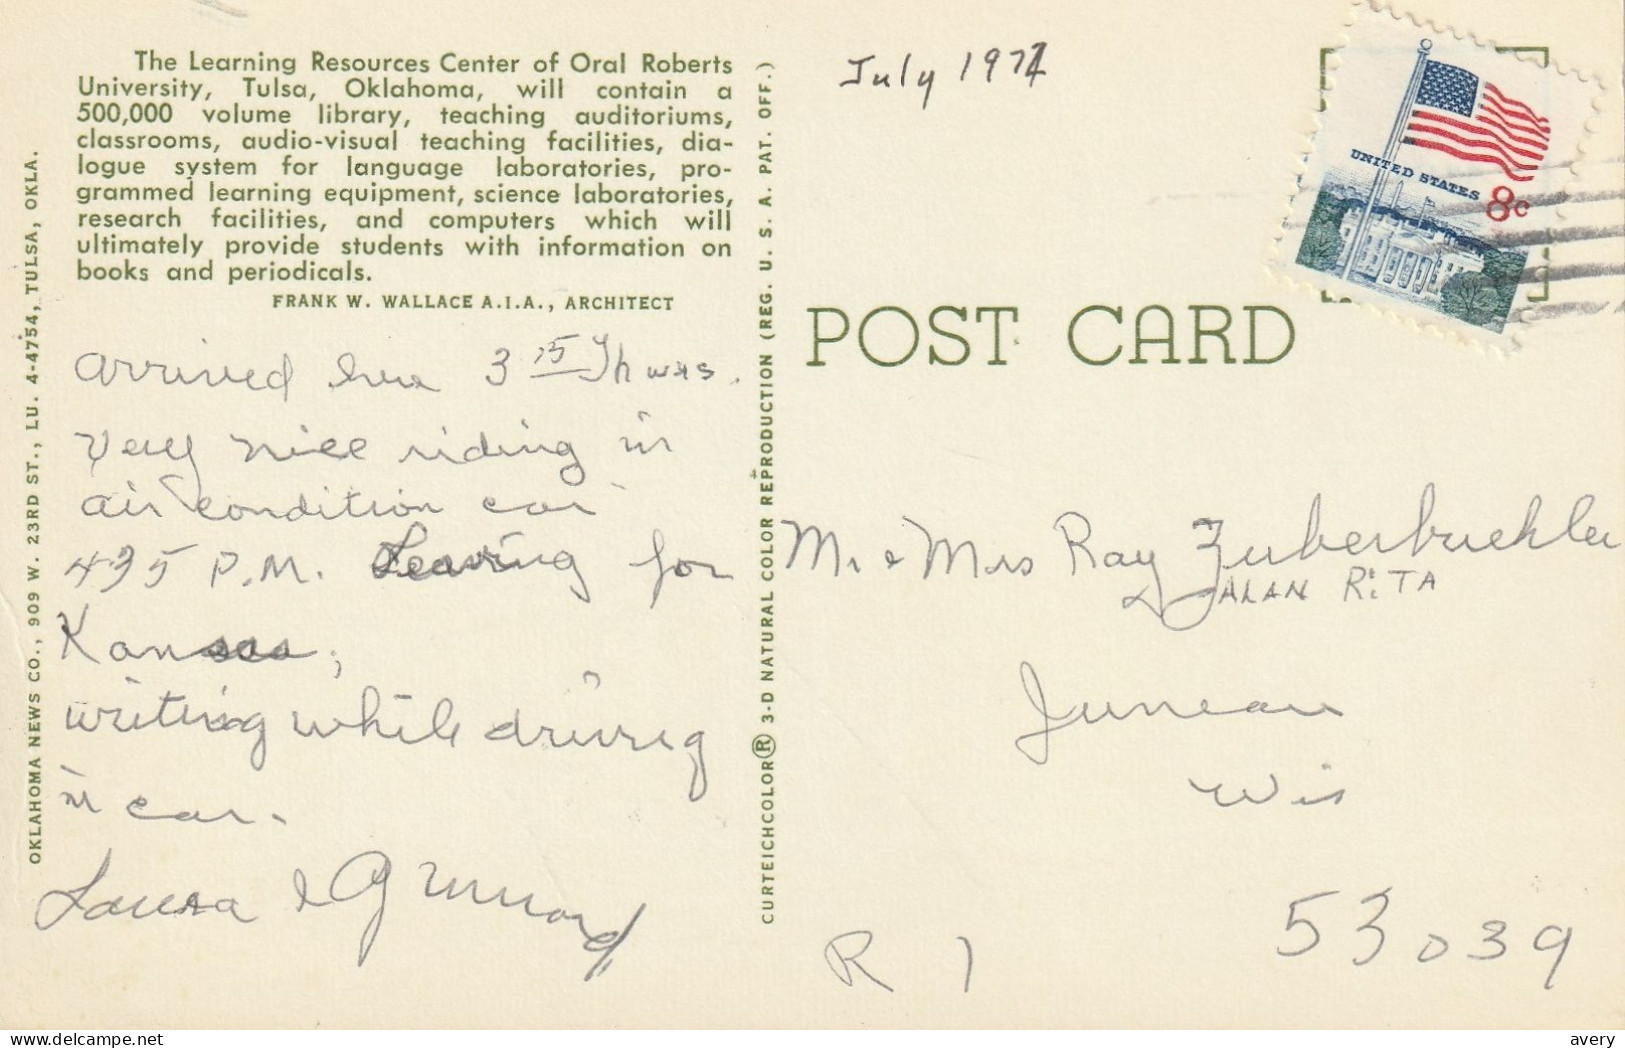 The Learning Resources Center of Oral Roberts
University, Tulsa, Oklahoma, will contain a
500,000 volume library, teaching auditoriums,
classrooms, audio-visual teaching facilities, dia-
logue system for language laboratories, pro-
grammed learning equipment, science laboratories,
research facilities, and computers which will
ultimately provide students with information on
books and periodicals.
FRANK W. WALLACE A.I.A., ARCHITECT
arrived here 3 15 Th was.
very nice riding in
air condition car
435 P.M. Leaving for
Kansas,
writing while driving
in car.
Laura &
OKLAHOMA NEWS CO., 909 W. 23RD ST., LU. 4-4754, TULSA, OKLA.
CURTEICHCOLOR® 3-D NATURAL COLOR REPRODUCTION (REG. U. S. A. PAT. OFF.)
July 1971
UNITED STATES 8c
POST CARD
Mr & Mrs Ray Zuberbuehler
ALAN RITA
Juneau
Wis
53039
R 1
delcampe.net
avery